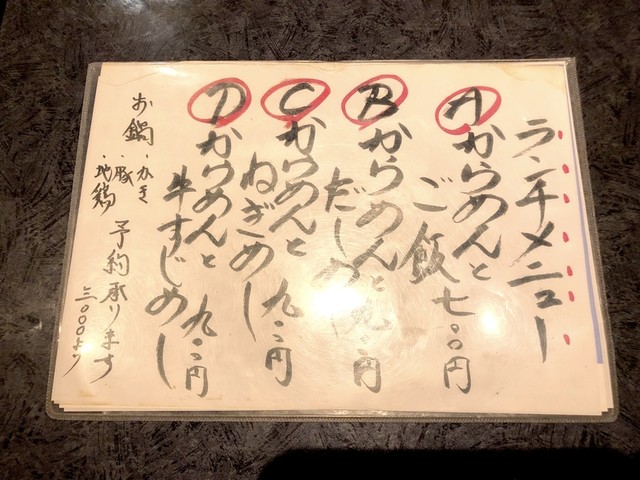 ランチメニュー
A からめんと
ご飯 七〇〇円
B からめんと
だしめし 九〇〇円
C からめんと
ねぎめし 九〇〇円
D からめんと
牛すじめし 九〇〇円
お鍋 ・かき
・豚
・地鶏
予約承ります
三〇〇〇より